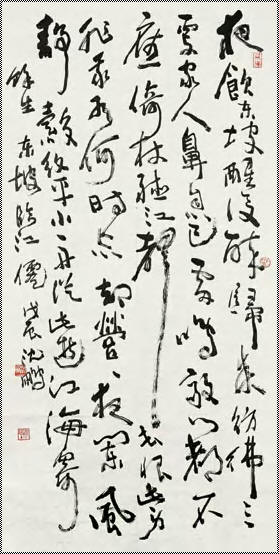 夜飲东坡醒復醉歸来彷彿三
更家人鼻息已雷鳴敲门都不
應倚杖聽江聲長恨此身
非我有何時忘却營〻夜闌風
靜縠紋平小舟從此逝江海寄
餘生东坡臨江僊戊辰沈鵬